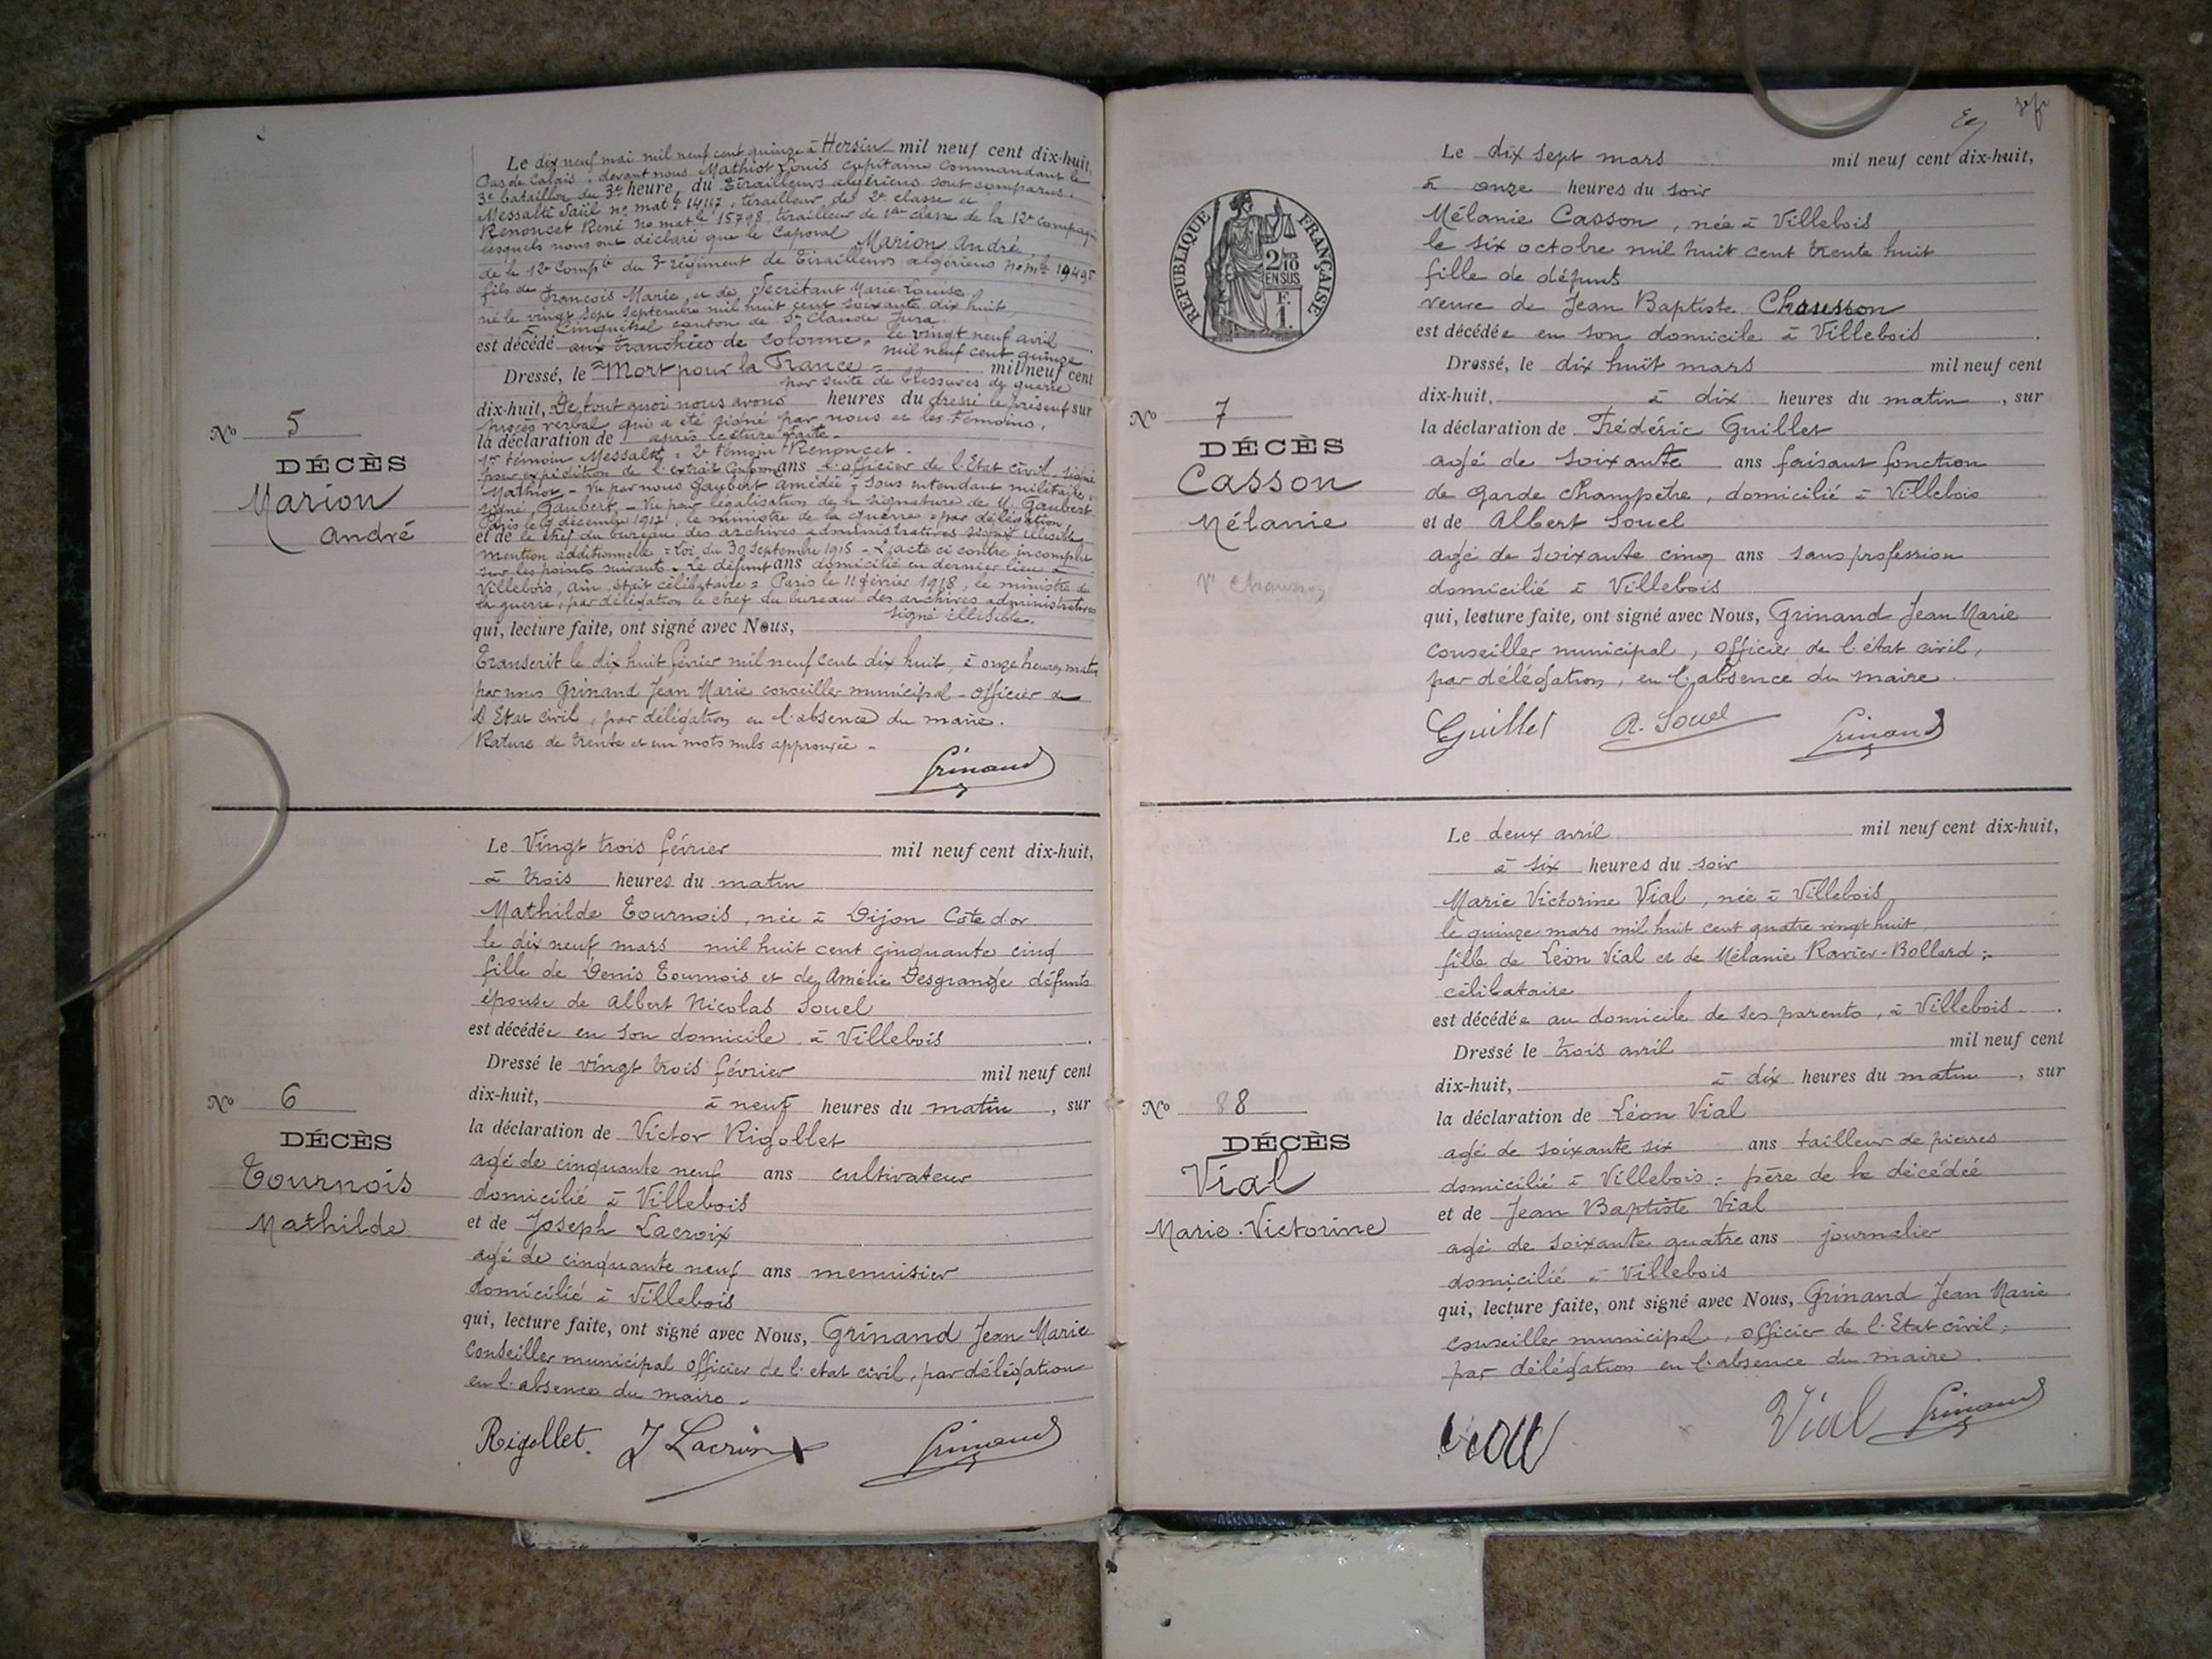 Le dix neuf mai mil neuf cent quinze à Hersin mil neuf cent dix-huit,
Pas de Calais, devant nous Mathiot Louis capitaine commandant le
3e bataillon du 3e heure, du Tirailleurs algériens sont comparus.
Messalti Saïd no matle 14117, tirailleur de 2e classe et
Renoncet René no matle 15798 tirailleur de 1ère classe de la 12e compagnie
lesquels nous ont déclaré que le Caporal Marion André
de la 12e Compie du 3e régiment de Tirailleurs algériens no mle 19495
fils de François Marie et de Secrétant Marie Louise
né le vingt sept septembre mil huit cent soixante dix huit,
à Cinquétral canton de St Claude Jura
est décédé aux tranchées de Colonne, le vingt neuf avril
mil neuf cent quinze
Dressé, le "Mort pour la France = mil neuf cent
par suite de blessures de guerre
dix-huit, De tout quoi nous avons heures du dressé le présent sur
procès verbal qui a été signé par nous et les témoins,
la déclaration de après lecture faite -
1er témoin Messalti = 2e témoin Renoncet -
pour expédition de l'extrait conforme ans l'officier de l'Etat civil signé
Mathiot - Vu par nous Gaubert Amédée = Sous intendant militaire.
signé, Gaubert. - Vu pour légalisation de la signature de M. Gaubert
Paris le décembre 1917, le ministre de la guerre = par délégation
et de le chef du bureau des archives administratives signé illisible
mention additionnelle = Loi du 30 septembre 1915 - L'acte ci contre incomplet
sur les points suivants - Le défunt ans domicilié en dernier lieu à
Villebois, Ain, était célibataire = Paris le 11 février 1918, le ministre de
la guerre, par délégation le chef du bureau des archives administratives
signé illisible.
qui, lecture faite, ont signé avec Nous,
Transcrit le dix huit février mil neuf cent dix huit, à onze heures matin
par nous Grinand Jean Marie conseiller municipal - officier de
l'Etat civil, par délégation en l'absence du maire.
Rature de trente et un mots nuls approuvée -
Grinand
No 5
DÉCÈS
Marion
André
Le Vingt trois février mil neuf cent dix-huit,
à trois heures du matin
Mathilde Tournois, née à Dijon Côte d'or
le dix neuf mars mil huit cent cinquante cinq
fille de Denis Tournois et de Amélie Desgrange défunts
épouse de Albert Nicolas Souel
est décédée en son domicile à Villebois
Dressé le vingt trois février mil neuf cent
dix-huit, à neuf heures du matin, sur
la déclaration de Victor Rigollet
agé de cinquante neuf ans cultivateur
domicilié à Villebois
et de Joseph Lacroix
agé de cinquante neuf ans menuisier
domicilié à Villebois
qui, lecture faite, ont signé avec Nous, Grinand Jean Marie
Conseiller municipal officier de l'etat civil, par délégation
en l'absence du maire -
Rigollet. J Lacroix Grinand
No 6
DÉCÈS
Tournois
Mathilde
Le dix sept mars mil neuf cent dix-huit,
à onze heures du soir
Mélanie Casson, née à Villebois
le six octobre mil huit cent trente huit
fille de défunts
veuve de Jean Baptiste Chausson
est décédée en son domicile à Villebois.
Dressé, le dix huit mars mil neuf cent
dix-huit, à dix heures du matin, sur
la déclaration de Frédéric Guillet
agé de soixante ans faisant fonction
de garde champêtre, domicilié à Villebois
et de Albert Souel
agé de soixante cinq ans sans profession
domicilié à Villebois
qui, lecture faite, ont signé avec Nous, Grinand Jean Marie
conseiller municipal, officier de l'état civil,
par délégation, en l'absence du maire.
Guillet A. Souel Grinand
RÉPUBLIQUE FRANÇAISE
2/10
EN SUS
F.
1.
No 7
DÉCÈS
Casson
Mélanie
Ve Chausson
Le deux avril mil neuf cent dix-huit,
à six heures du soir
Marie Victorine Vial, née à Villebois
le quinze mars mil huit cent quatre vingt huit
fille de Léon Vial et de Mélanie Ravier-Bollard;
célibataire
est décédée au domicile de ses parents, à Villebois.
Dressé le trois avril mil neuf cent
dix-huit, à dix heures du matin, sur
la déclaration de Léon Vial
agé de soixante six ans tailleur de pierres
domicilié à Villebois: père de la décédée
et de Jean Baptiste Vial
agé de soixante quatre ans journalier
domicilié à Villebois
qui, lecture faite, ont signé avec Nous, Grinand Jean Marie
conseiller municipal, officier de l'Etat civil,
par délégation en l'absence du maire
Vial Grinand
No 88
DÉCÈS
Vial
Marie-Victorine